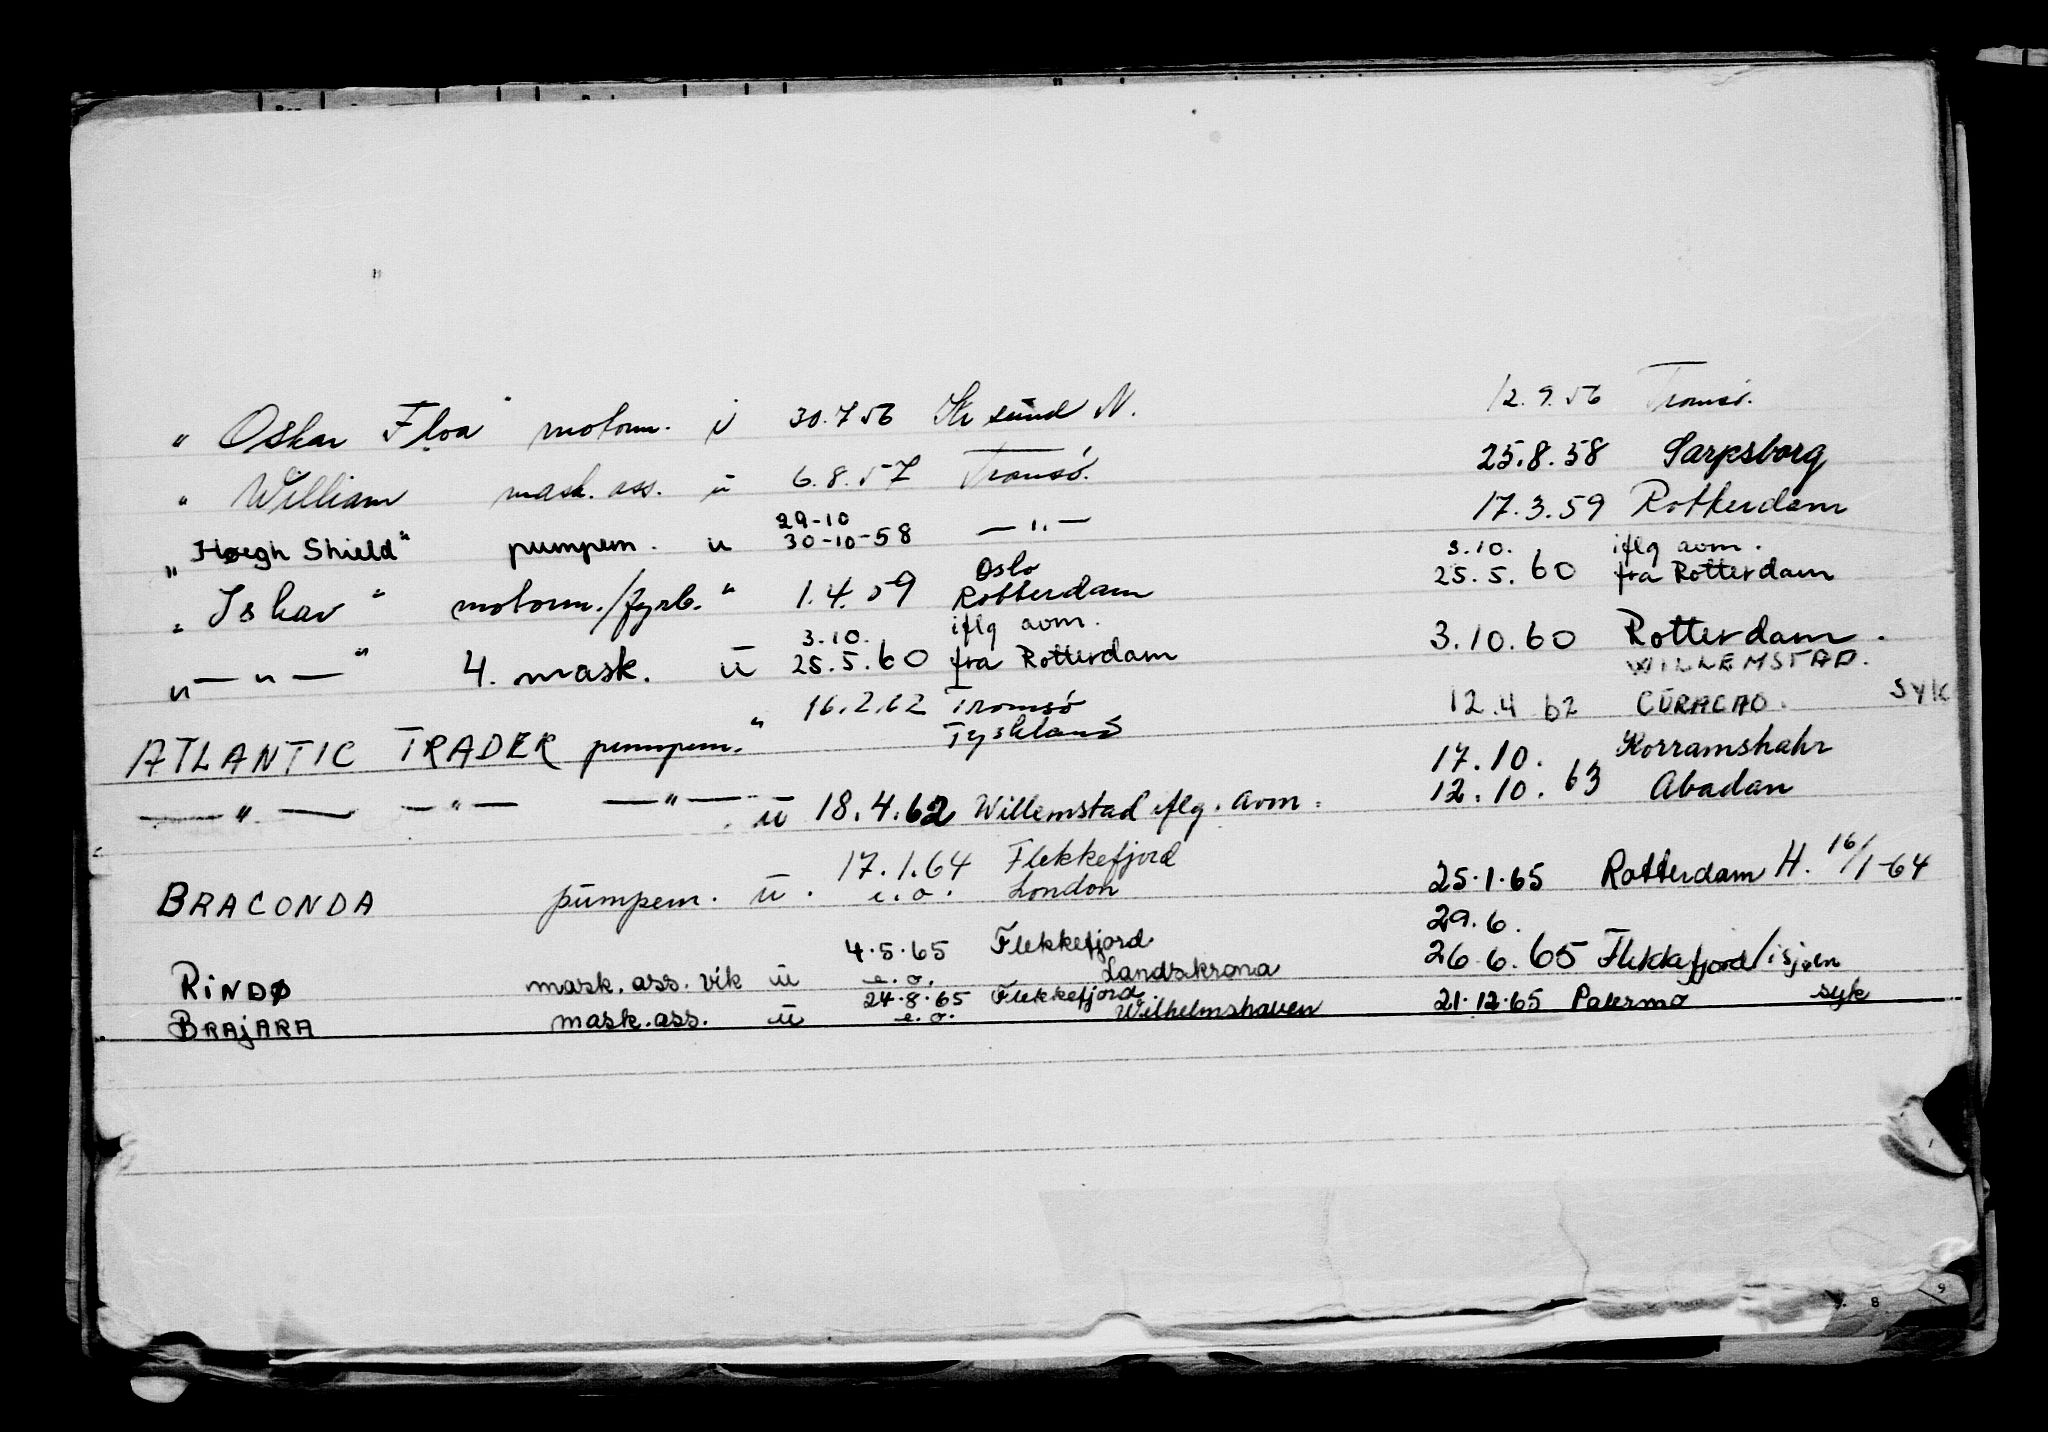 „ Oskar Floa" motorm. u 30.7.56 Kr sund N. 12.9.56 Tromsö.
„ William mask. ass. u 6.8.57 Tromsö. 25.8.58 Sarpsborg
„Høegh Shield" pumpem. u 29-10 30-10-58 — " — 17.3.59 Rotterdam
„ Ishav " motorm./fyrb. " 1.4.59 Oslo Rotterdam 3.10. 25.5.60 iflg avm. fra Rotterdam
" — " — " 4. mask. u 3.10. 25.5.60 iflg avm. fra Rotterdam 3.10.60 Rotterdam.
ATLANTIC TRADER pumpem. " 16.2.62 Tromsø Tyskland 12.4 62 WILLEMSTAD. CURACAO. SYK
— " — — " — — " — u 18.4.62 Willemstad iflg. avm. 17.10. 12.10.63 Korramshahr Abadan
BRACONDA pumpem. u. 17.1.64 e.o. Flekkefjord London 25.1.65 Rotterdam H. 16/1-64
RINDØ mask. ass. vik u 4.5.65 e.o. Flekkefjord Landskrona 29.6. 26.6.65 Flekkefjord/isjøen
BRAJARA mask. ass. u 24.8.65 e.o. Flekkefjord Wilhelmshaven 21.12.65 Palermo syk
8 9